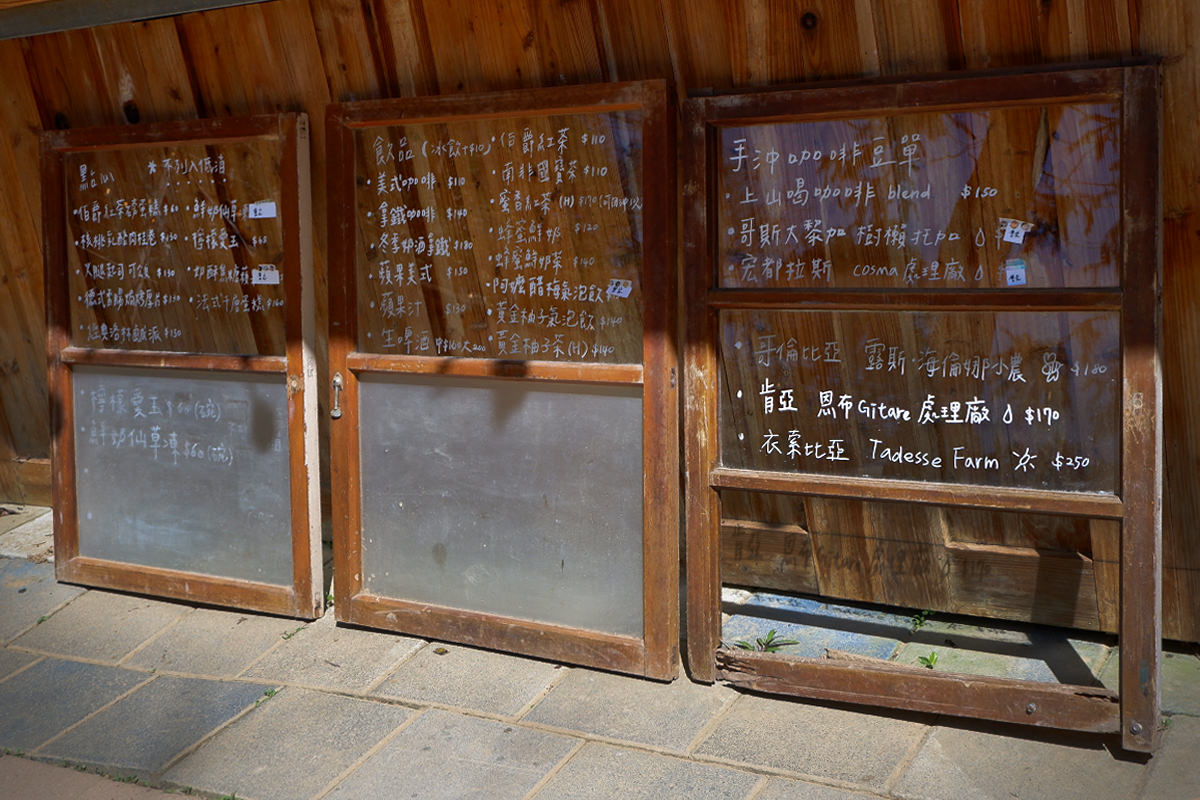 點心 *不列入低消
・伯爵紅茶磅蛋糕 $60
・核桃乳酪肉桂捲 $130
・火腿起司可頌 $130
$130
・經典洛林鹹派 $130
・鮮奶仙草
・檸檬愛玉 $60
・法式千層蛋糕 $160
・檸檬愛玉 $60 (碗)
・鮮奶仙草凍 $60 (碗)
飲品 (冰飲+$10)
・美式咖啡 $110
・拿鐵咖啡 $140
・冬季奶酒拿鐵 $180
・蘋果美式 $150
・蘋果汁 $130
・生啤酒 中$160 大200
・伯爵紅茶 $110
・南非國寶茶 $110
・蜜香紅茶 (H) $170
・蜂蜜鮮奶 $120
・蜂蜜鮮奶茶 $140
・阿嬤醋梅氣泡飲
・黃金柚子氣泡飲 $140
・黃金柚子茶(H) $140
手沖咖啡豆單
・上山喝咖啡 blend $150
・哥斯大黎加 樹懶拉加
・宏都拉斯 cosma 處理廠
・哥倫比亞 露斯・海倫娜小農 $180
・肯亞 恩布 Gitare 處理廠 $170
・衣索比亞 Tadesse Farm $250